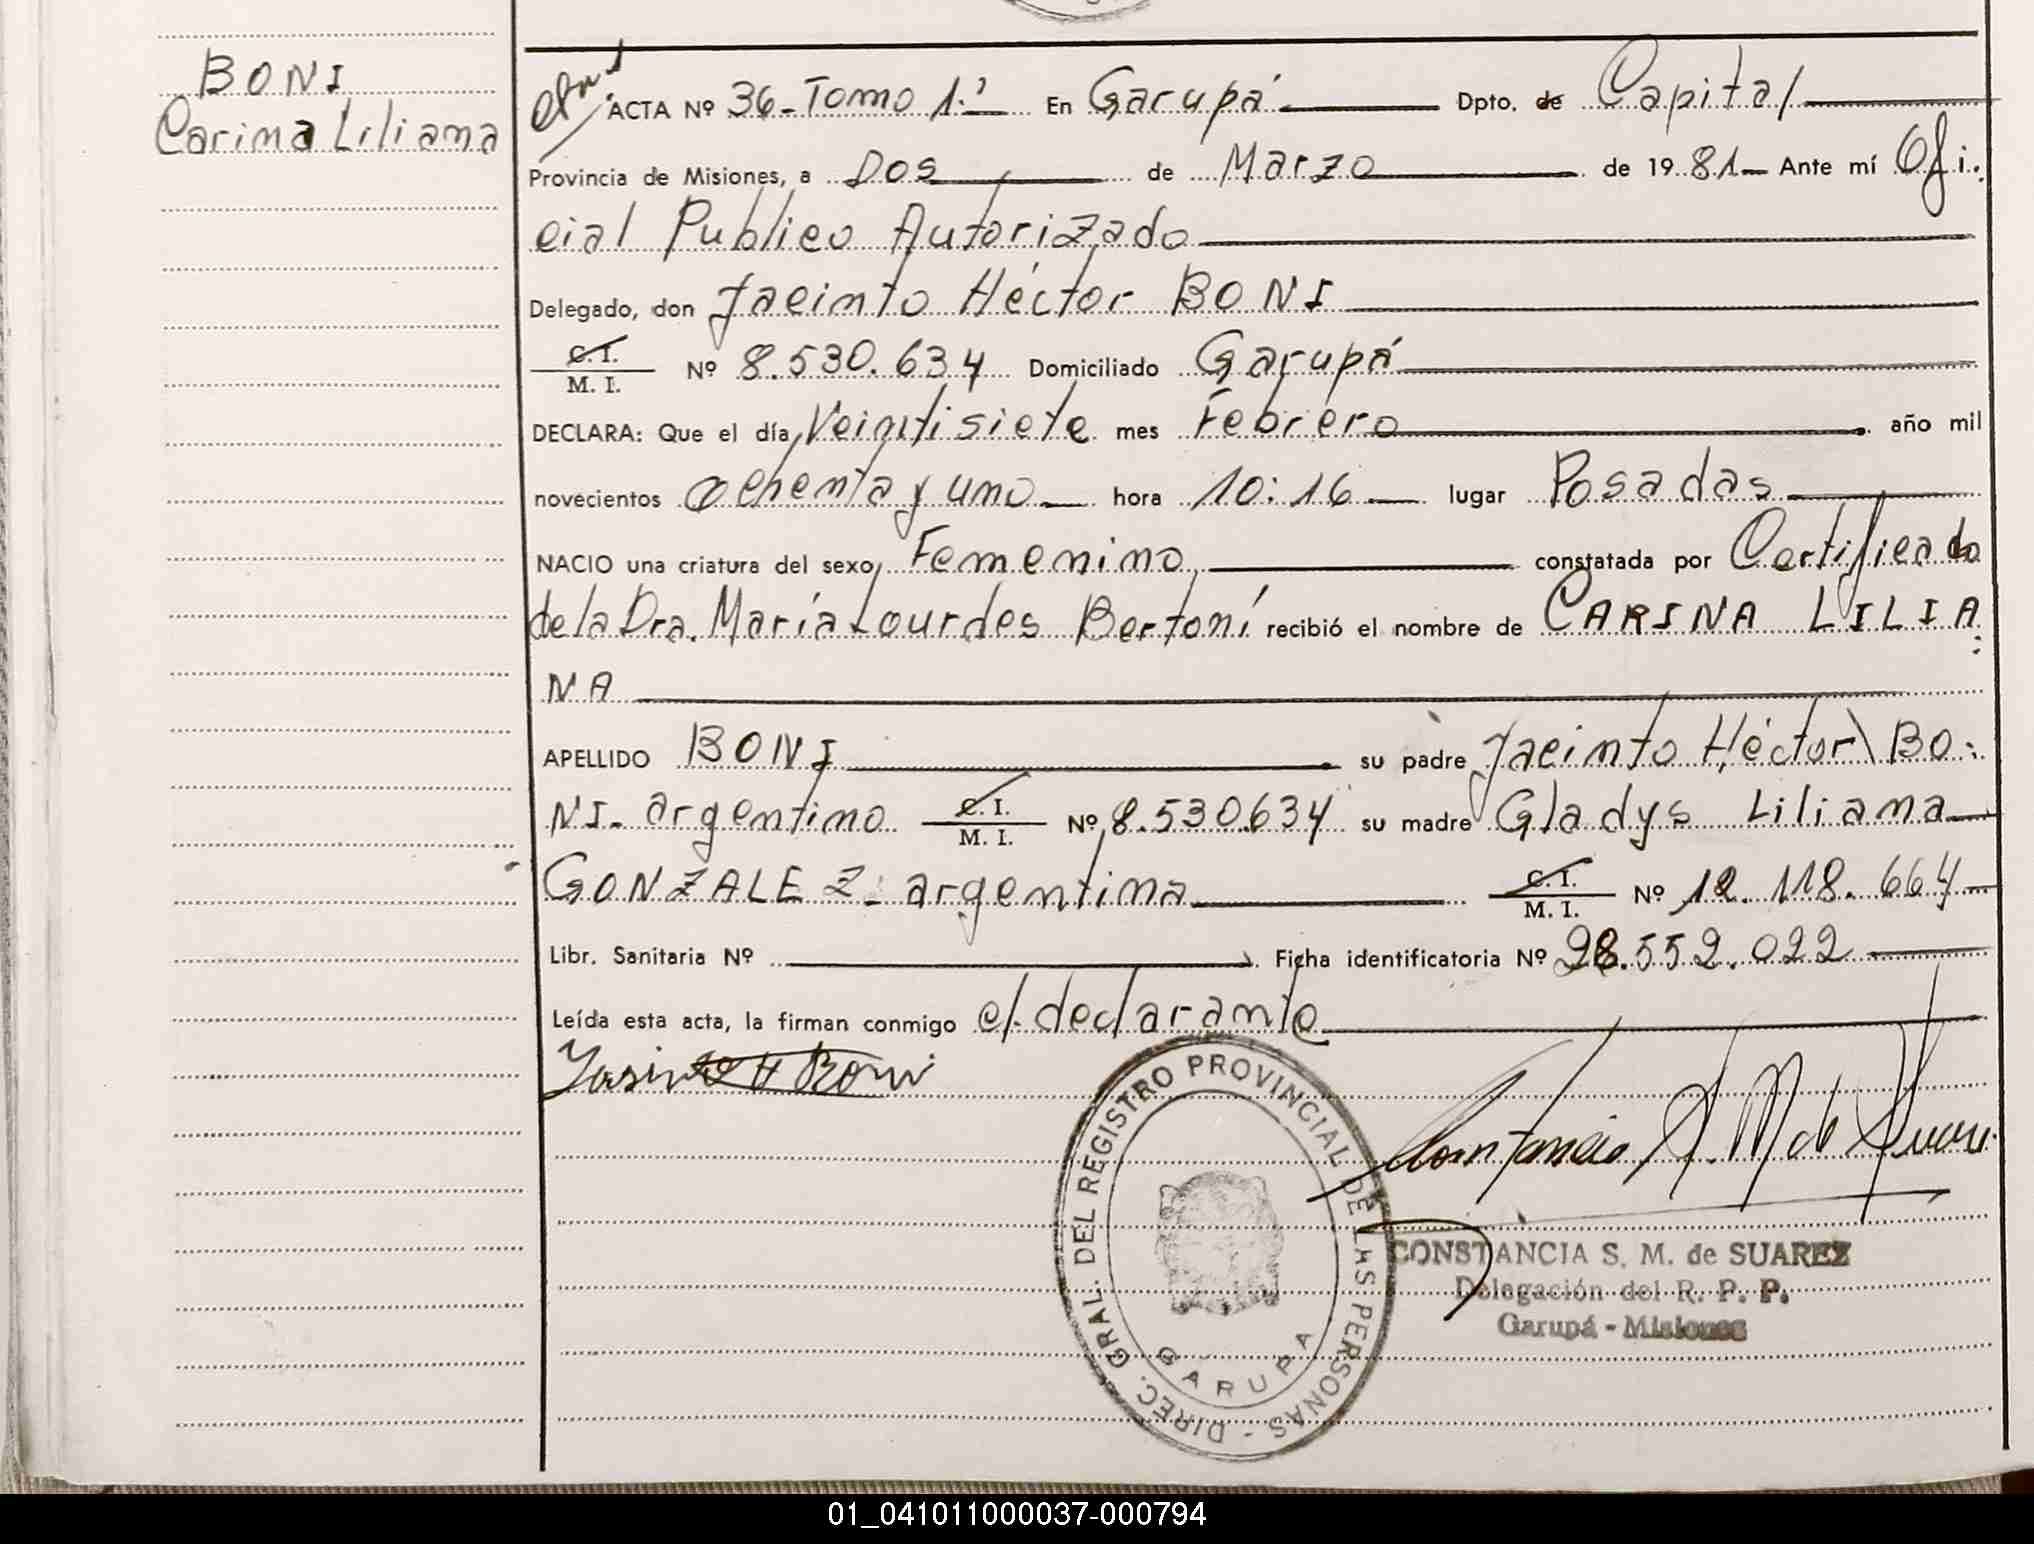 BONI
Carina Liliana
ACTA Nº 36-Tomo 1º En Garupá Dpto. de Capital
Provincia de Misiones, a Dos de Marzo de 1981 Ante mí Ofi-
cial Publico Autorizado
Delegado, don Jacinto Héctor BONI
C. I.
M. I. Nº 8.530.634 Domiciliado Garupá
DECLARA: Que el día Veintisiete mes Febrero año mil
novecientos ochenta y uno hora 10:16 lugar Posadas
NACIO una criatura del sexo Femenino constatada por Certificado
de la Dra. María Lourdes Bertoni recibió el nombre de CARINA LILIA
NA
APELLIDO BONI su padre Jacinto Héctor BO-
NI- argentino C. I. M. I. Nº 8.530.634 su madre Gladys Liliana
GONZALEZ- argentina C. I. M. I. Nº 12.118.664
Libr. Sanitaria Nº Ficha identificatoria Nº 28.552.022
Leída esta acta, la firman conmigo el declarante
Jasinto H Boni
Constancia S. M de Suarez
DIREC. GRAL. DEL REGISTRO PROVINCIAL DE LAS PERSONAS -
GARUPA
CONSTANCIA S. M. de SUAREZ
Delegación del R. P. P.
Garupá - Misiones
01_041011000037-000794